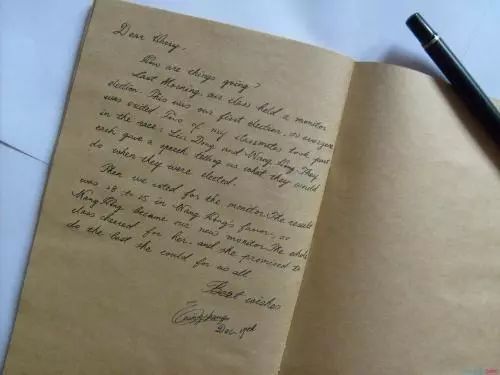 Dear
How are things going?
Last Morning, our class held a monitor
election. This was our first election, so everyone
was exited. Two of my classmates took part
in the race: Liu Ding and Wang Hong. They
each gave a speech telling us what they would
do when they were elected.
Then we voted for the monitor. The result
was 28 to 15 in Wang Hong's favor, so
Wang Hong became our new monitor. The whole
class cheered for her, and she promised to
do the best she could for us all
Best wishes
Dec.